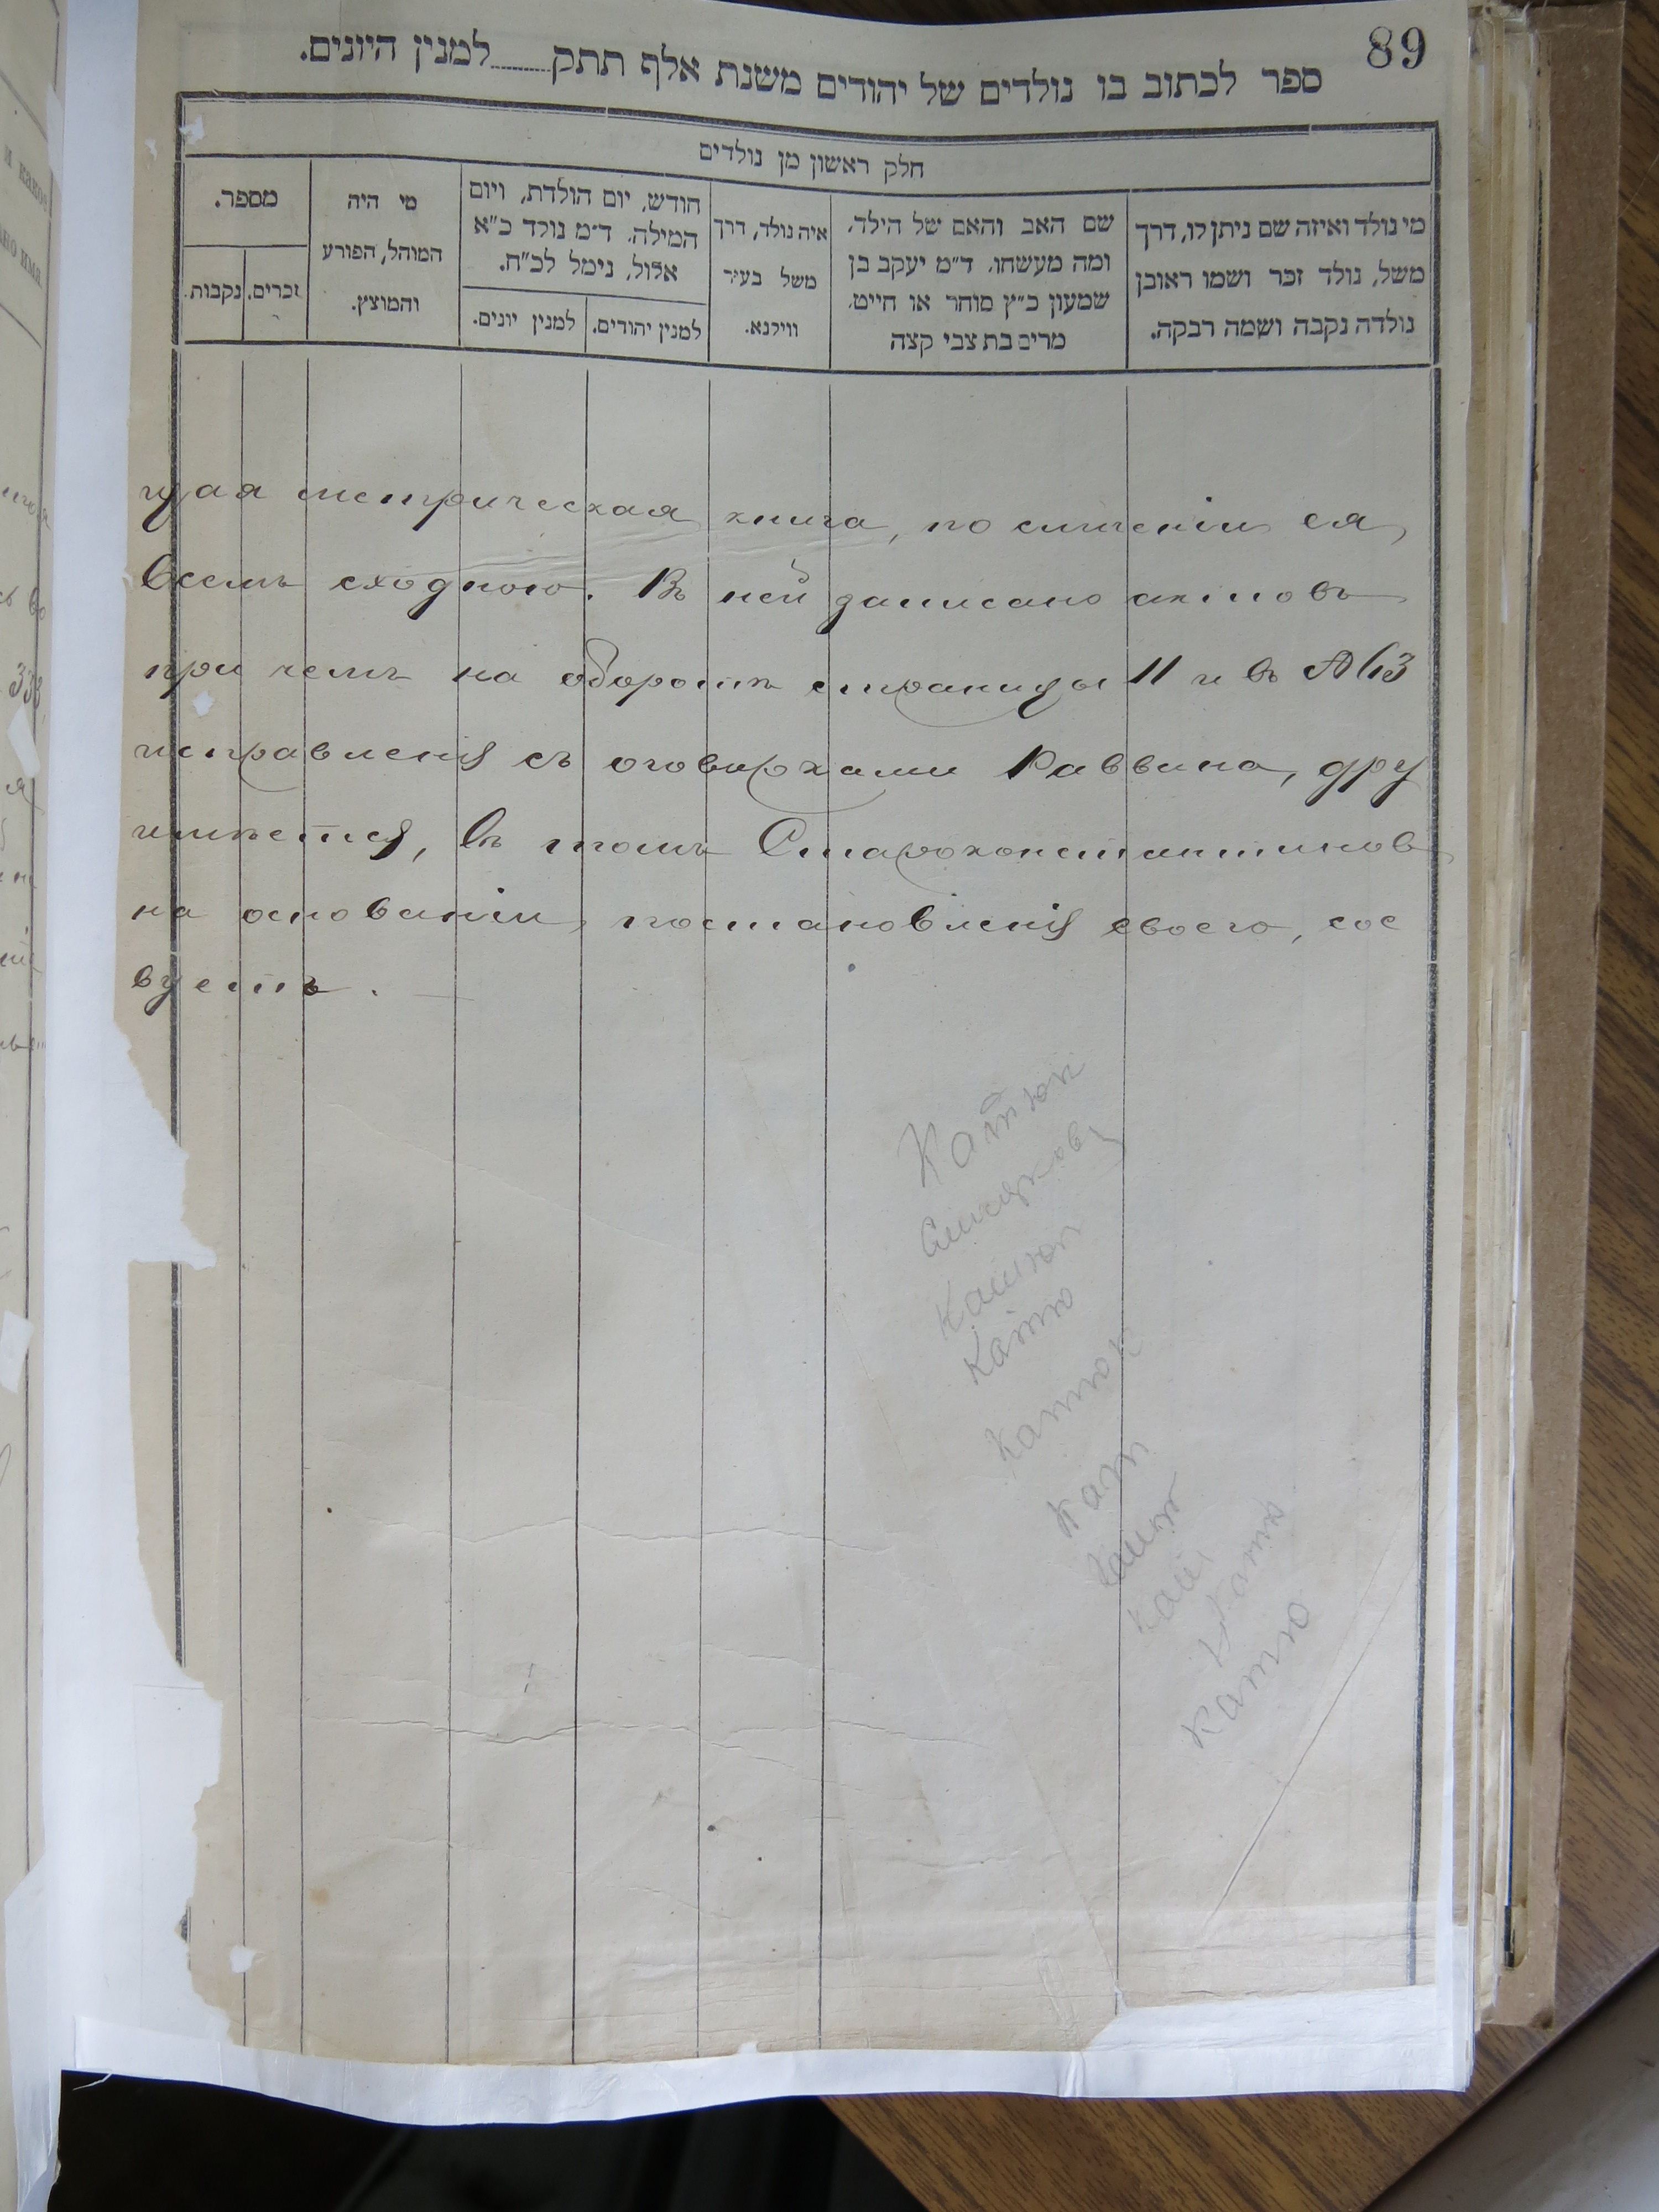 89
ספר לכתוב בו נולדים של יהודים משנת אלף תתק.......למנין היונים.
חלק ראשון מן נולדים
מי נולד ואיזה שם ניתן לו, דרך
משל, נולד זכר ושמו ראובן
נולדה נקבה ושמה רבקה.
שם האב והאם של הילד,
ומה מעשהו. ד״מ יעקב בן
שמעון כ״ץ סוחר או חייט.
מרים בת צבי קצב
איה נולד, דרך
משל בעיר
ווילנא.
חודש, יום הולדת, ויום
המילה. ד״מ נולד כ״א
אלול, נימל לכ״ח.
למנין יהודים.
למנין יונים.
מי היה
המוהל, הפורע
והמוצץ.
מספר.
זכרים.
נקבות.
щая метрическая книга, по сличеніи ея,
всемъ сходною. Въ ней записано актовъ
при чемъ на оборотѣ страницы 11 и въ
исправленія съ оговорками Раввина, дру
имѣется, въ томъ Староконстантинов
на основаніи, постановленія своего, сос
вуетъ.
Катюк
Катюк
Катю
Катюк
Кат
Катю
Кат
Катю
Катю